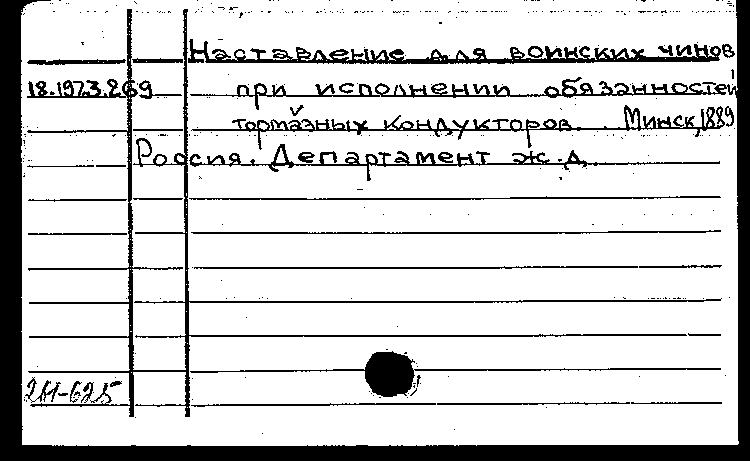 Наставление для воинских чинов
18.197.3.269 при исполнении обязанностей
тормазных кондукторов. Минск, 1889
Россия. Департамент ж.д.